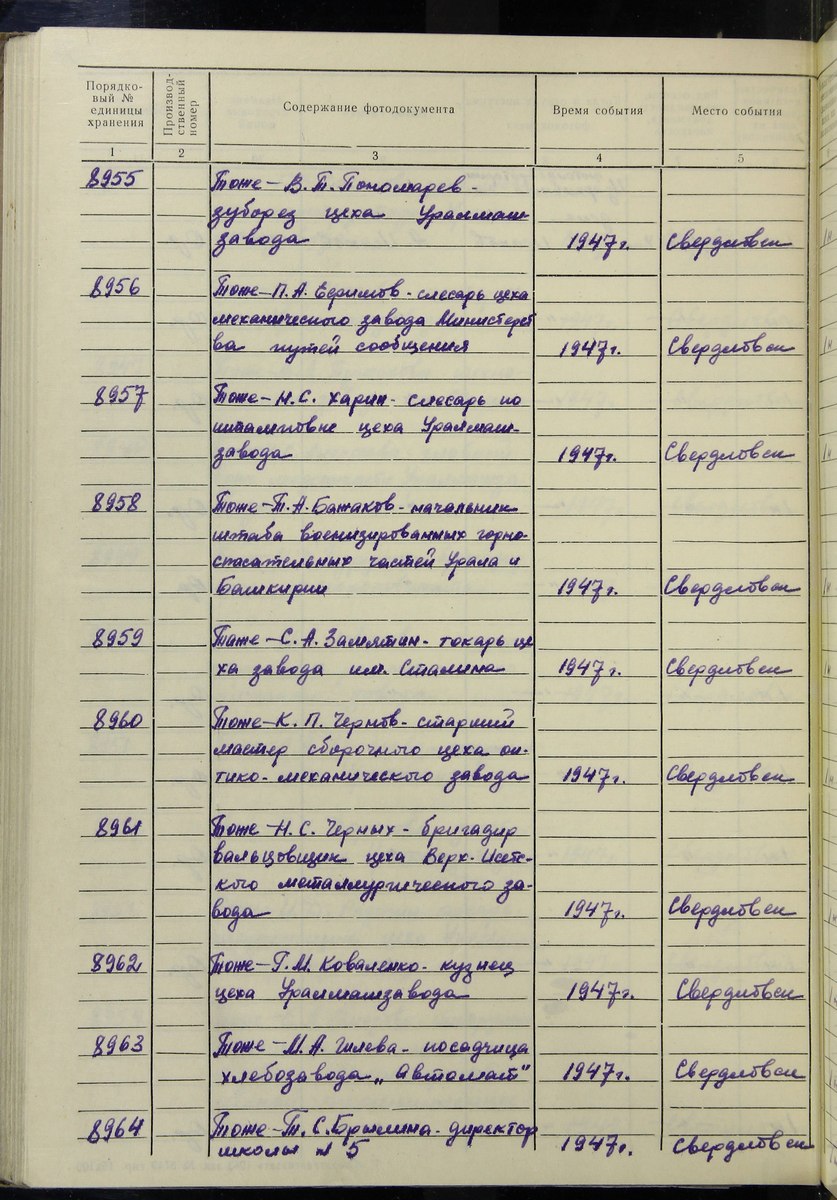 Порядко-
вый №
единицы
хранения
Производ-
ственный
номер
Содержание фотодокумента
Время события
Место события
1 2 3 4 5
8955 Тоже – В. Т. Пономарев -
зуборез цеха Уралмаш-
завода 1947г. Свердловск
8956 Тоже – П. А. Ефимов - слесарь цеха
механического завода Министерст
ва путей сообщения 1947г. Свердловск
8957 Тоже – Н. С. Харин - слесарь по
штамповке цеха Уралмаш-
завода 1947г. Свердловск
8958 Тоже – Т. А. Бажаков - начальник
штаба военизированных горно-
спасательных частей Урала и
Башкирии 1947г. Свердловск
8959 Тоже – С. А. Замятин - токарь це
ха завода им. Сталина 1947г. Свердловск
8960 Тоже – К. П. Чернов - старший
мастер сборочного цеха оп-
тико-механического завода 1947г. Свердловск
8961 Тоже – Н. С. Черных - бригадир
вальцовщик цеха Верх-Исетс-
кого металлургического за-
вода 1947г. Свердловск
8962 Тоже – Г. М. Коваленко - кузнец
цеха Уралмашзавода 1947г. Свердловск
8963 Тоже – М. А. Гилева - посадчица
хлебозавода „Автомат" 1947г. Свердловск
8964 Тоже – Т. С. - директор
школы № 5 1947г. Свердловск